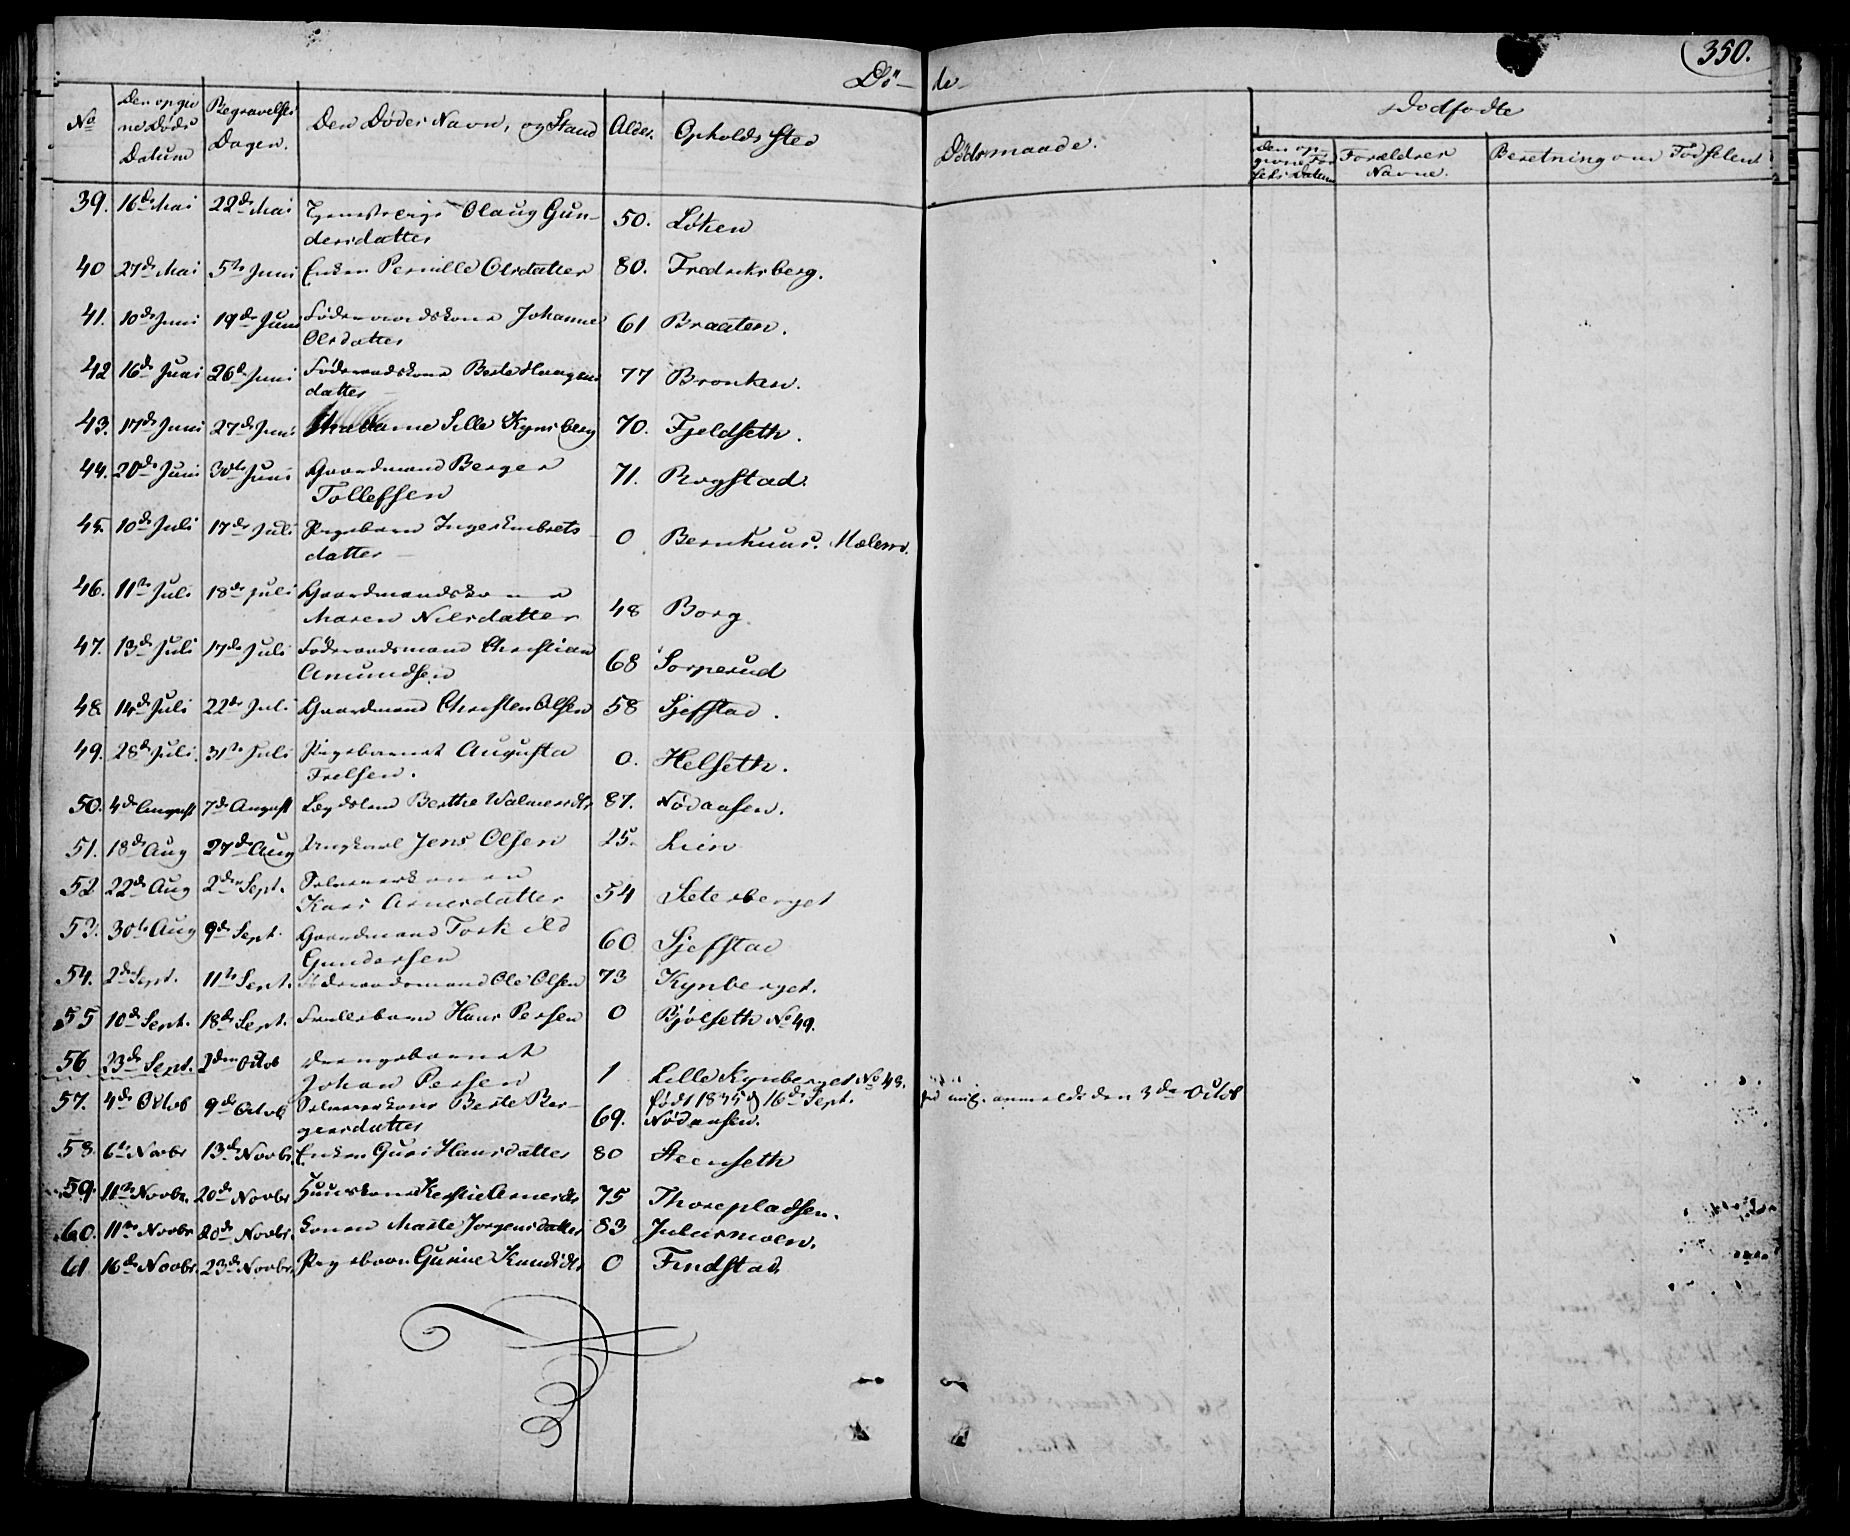 350.
Dö- de
No
Den opgiv
ne Døds
Datum
Begravelses
Dagen.
Den Dødes Navn, og Stand
Alder.
Opholds Sted
Dödsmaade.
Dodfodte
Den op-
givne Fød
sels Datum
Forældres
Navne.
Beretning om Födselen
39. 16de Mai 22de Mai Olaug Gun-
dersdatter 50. Löken
40 27de Mai 5te Juni Enken Pernille Olsdatter 80. Fredriksberg.
41. 10de Juni 19de Juni Föderaadskone Johanne
Olsdatter 61 Braaten.
42 16de Juni 26de Juni Föderaadskone Berte Haagens
datter 77 Bronken.
43. 17de Juni 27de Juni Madame Sille Kynsberg 70. Fjeldseth.
44. 20de Juni 30te Juni Gaardmand Berger
Tollefsen 71. Rogstad.
45. 10de Juli 17de Juli Pigebarn Inger Embrets-
datter 0 Bernhuus. Mælem.
46. 11te Juli 18de Juli Gaardmandskone
Maren Nilsdatter 48 Borg.
47. 13de Juli 17de Juli Föderaadsmand Christian
Amundsen 68 Sorperud
48 14de Juli 22de Juli Gaardmand Christen Olsen 58 Sjefstad.
49. 28de Juli 31te Juli Pigebarnet Augusta
Frelsen. 0. Helseth.
50. 4de August 7de August Lægdslem Berthe Walmersdtr 87. Nödaasen.
51. 18de Aug 27de Aug Ungkarl Jens Olsen 25. Lien
52 22de Aug 2den Sept.
Kari Arnesdatter 54 Sæterberget
53. 30te Aug 9de Sept. Gaardmand Torkild
Gundersen 60 Sjefstad
54. 2den Sept. 11te Sept. Föderaadsmand Ole Olsen 73 Kynberget.
55 10de Sept. 18de Sept. Hans Persen 0 Bjölseth No 49.
56 23de Sept. 2den Octob Drengebarnet
Johan Persen 1 Lille Kynberget No 43.
födt 1835 d 16de Sept. anmeldt den 3de Octob
57. 4de Octob 9de Octob Berte Ber-
gersdatter 69. Nödaasen.
58. 6te Novbr 13de Novbr Enken Guri Hansdatter 80 Steenseth
59. 11te Novbr. 20de Novbr Huuskone Kerstie Arnesdtr 75 Thorepladsen.
60. 11te Novbr 20de Novbr. Konen Marte Jörgensdatter 83 Julusmoen.
61 16de Novbr. 23de Novbr. Pigebarn Gurine Knudsdtr 0 Findstad